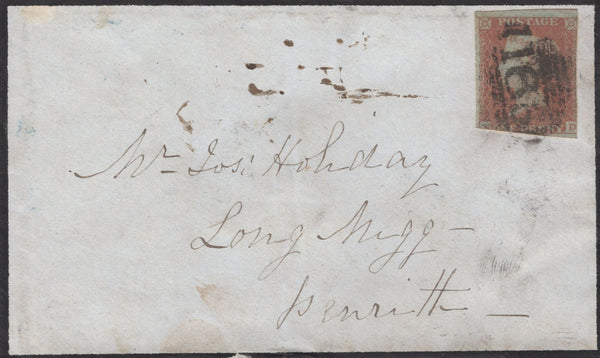 POSTAGE
Mr. Jos: Holiday
Long Migg-
Penrith -
D